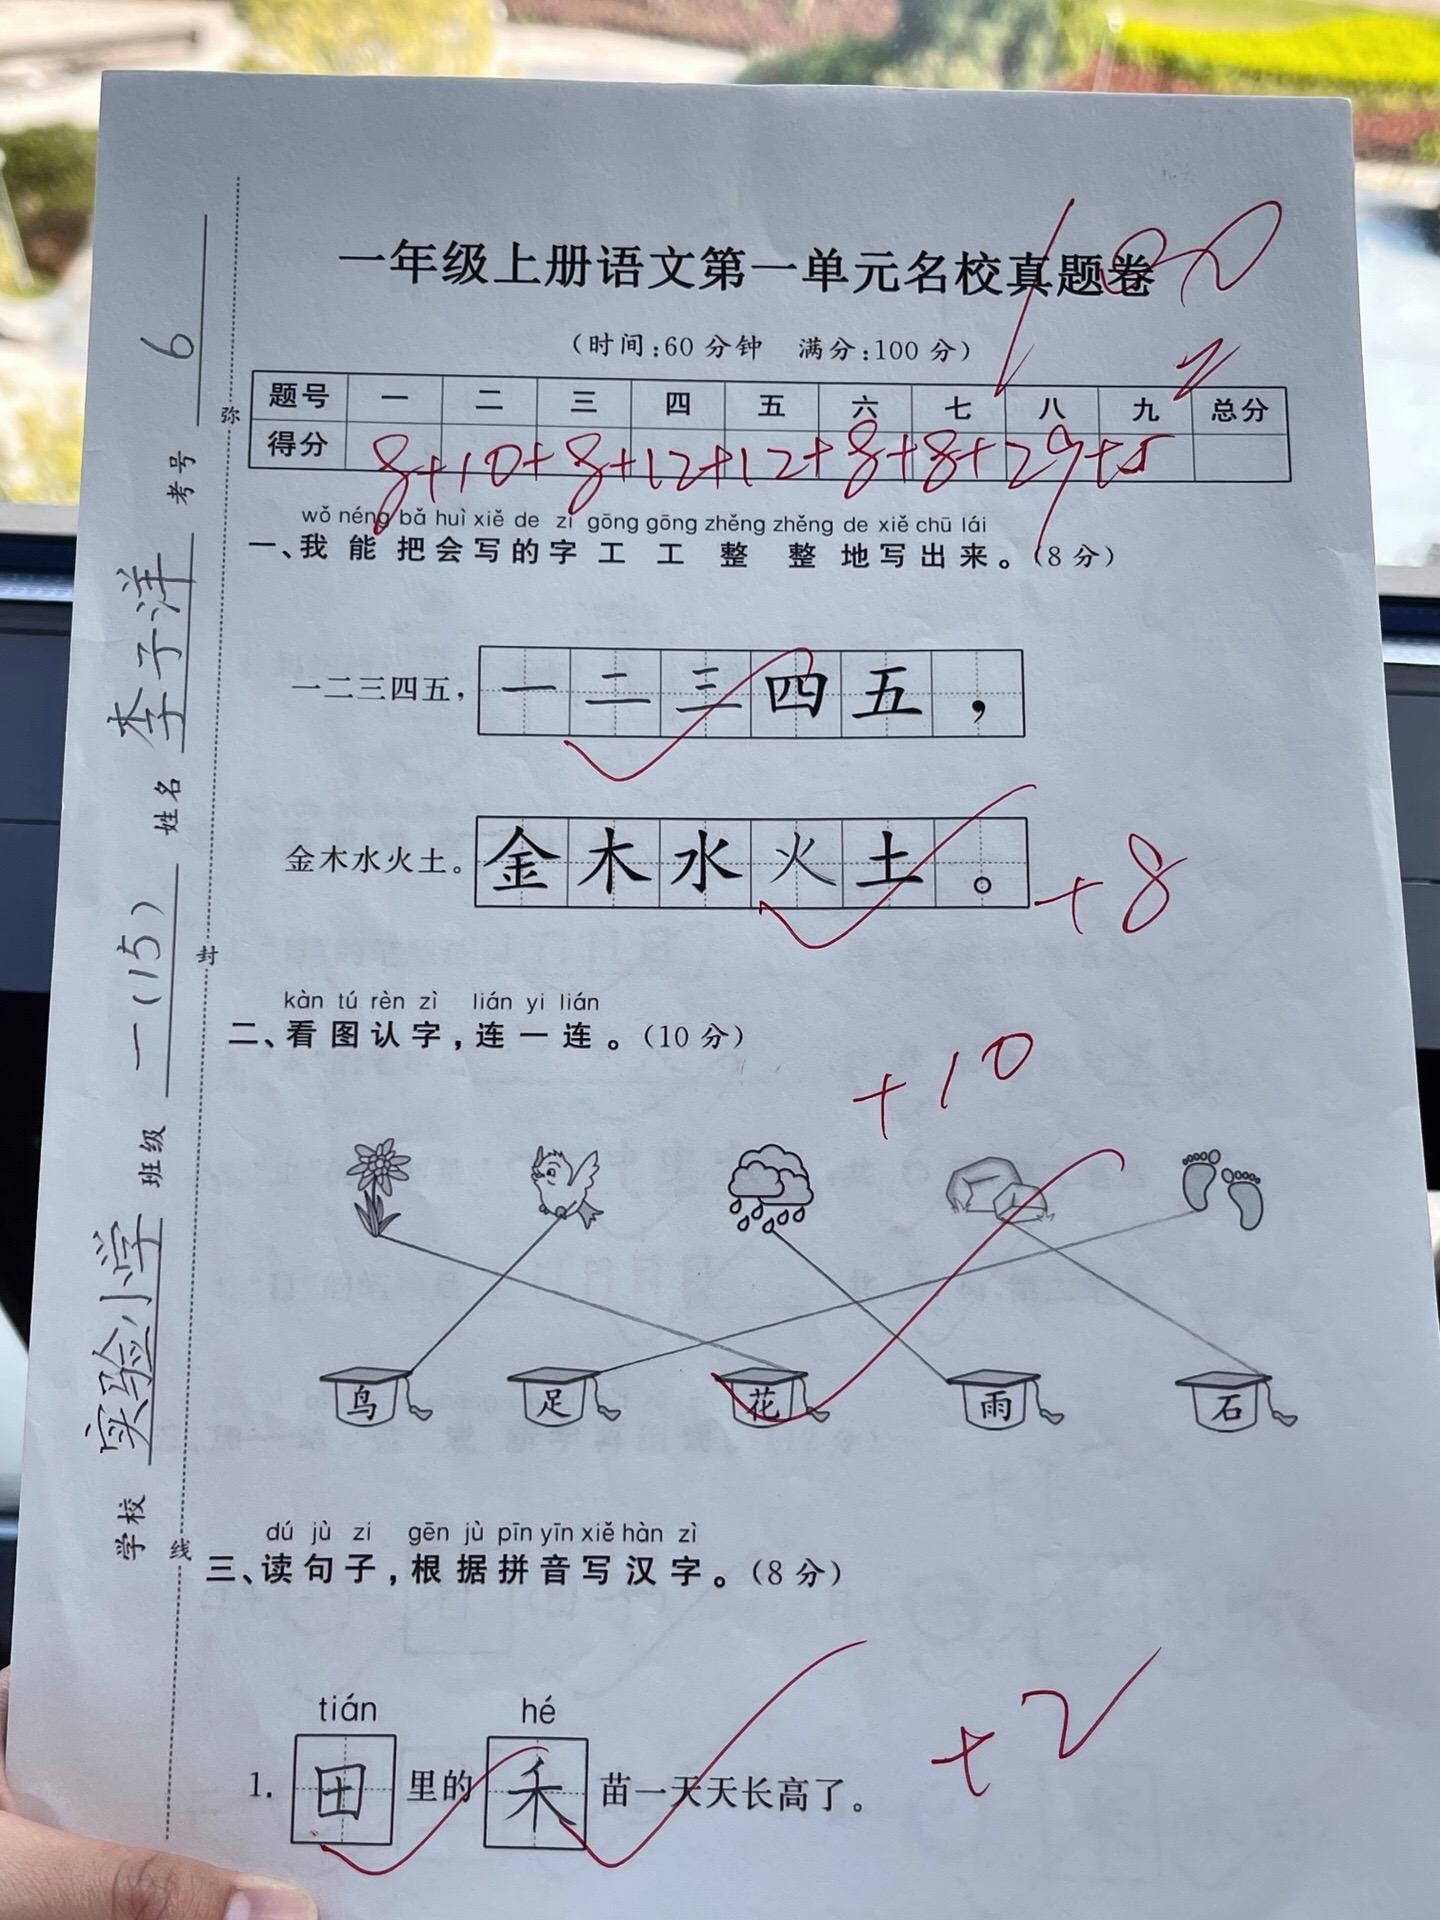 一年级上册语文第一单元名校真题卷
100
(时间:60分钟 满分:100分)
题号 一 二 三 四 五 六 七 八 九 总分
得分 8+10+8+12+12+8+8+29+5
wǒ néng bǎ huì xiě de zì gōng gōng zhěng zhěng de xiě chū lái
一、我能把会写的字工工整整地写出来。(8分)
一二三四五, 一二三四五,
金木水火土。 金木水火土。 +8
kàn tú rèn zì lián yi lián
二、看图认字,连一连。(10分)
+10
鸟 足 花 雨 石
dú jù zi gēn jù pīn yīn xiě hàn zì
三、读句子,根据拼音写汉字。(8分)
tián hé
1. 田里的禾苗一天天长高了。 +2
学校 实验小学 班级 一(15) 姓名 李子洋 考号 6
弥 封 线